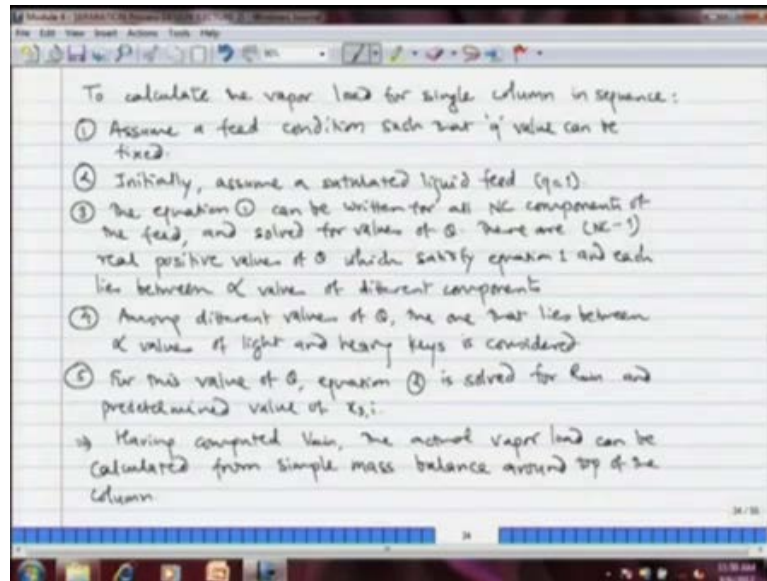 Module 4 : SEPARATION Process DESIGN (LECTURE 2) - Windows Journal
File Edit View Insert Actions Tools Help
To calculate the vapor load for single column in sequence :
① Assume a feed condition such that 'q' value can be
fixed.
② Initially, assume a saturated liquid feed (q=1).
③ The equation ① can be written for all NC components of
the feed, and solved for values of θ. There are (NC-1)
real positive values of θ which satisfy equation 1 and each
lies between α values of different components
④ Among different values of θ, the one that lies between
α values of light and heavy keys is considered
⑤ For this value of θ, equation ② is solved for Rmin and
predetermined value of xD,i.
⇒ Having computed Vmin, the actual vapor load can be
calculated from simple mass balance around top of the
column.
24
11:50 AM